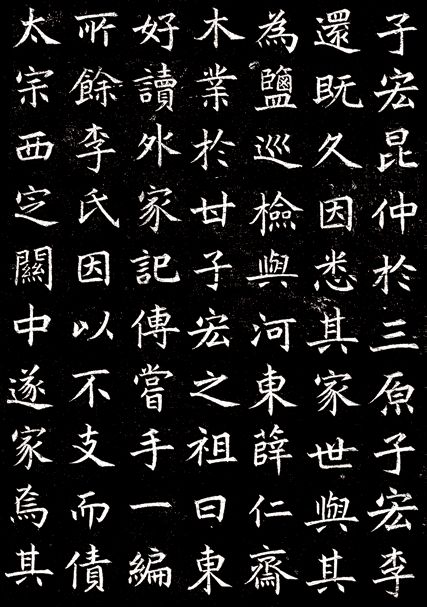 子宏昆仲於三原子宏李
還既久因悉其家世與其
為鹽巡檢與河東薛仁齋
木業於甘子宏之祖曰東
好讀外家記傳嘗手一編
所餘李氏因以不支而債
太宗西定關中遂家焉其